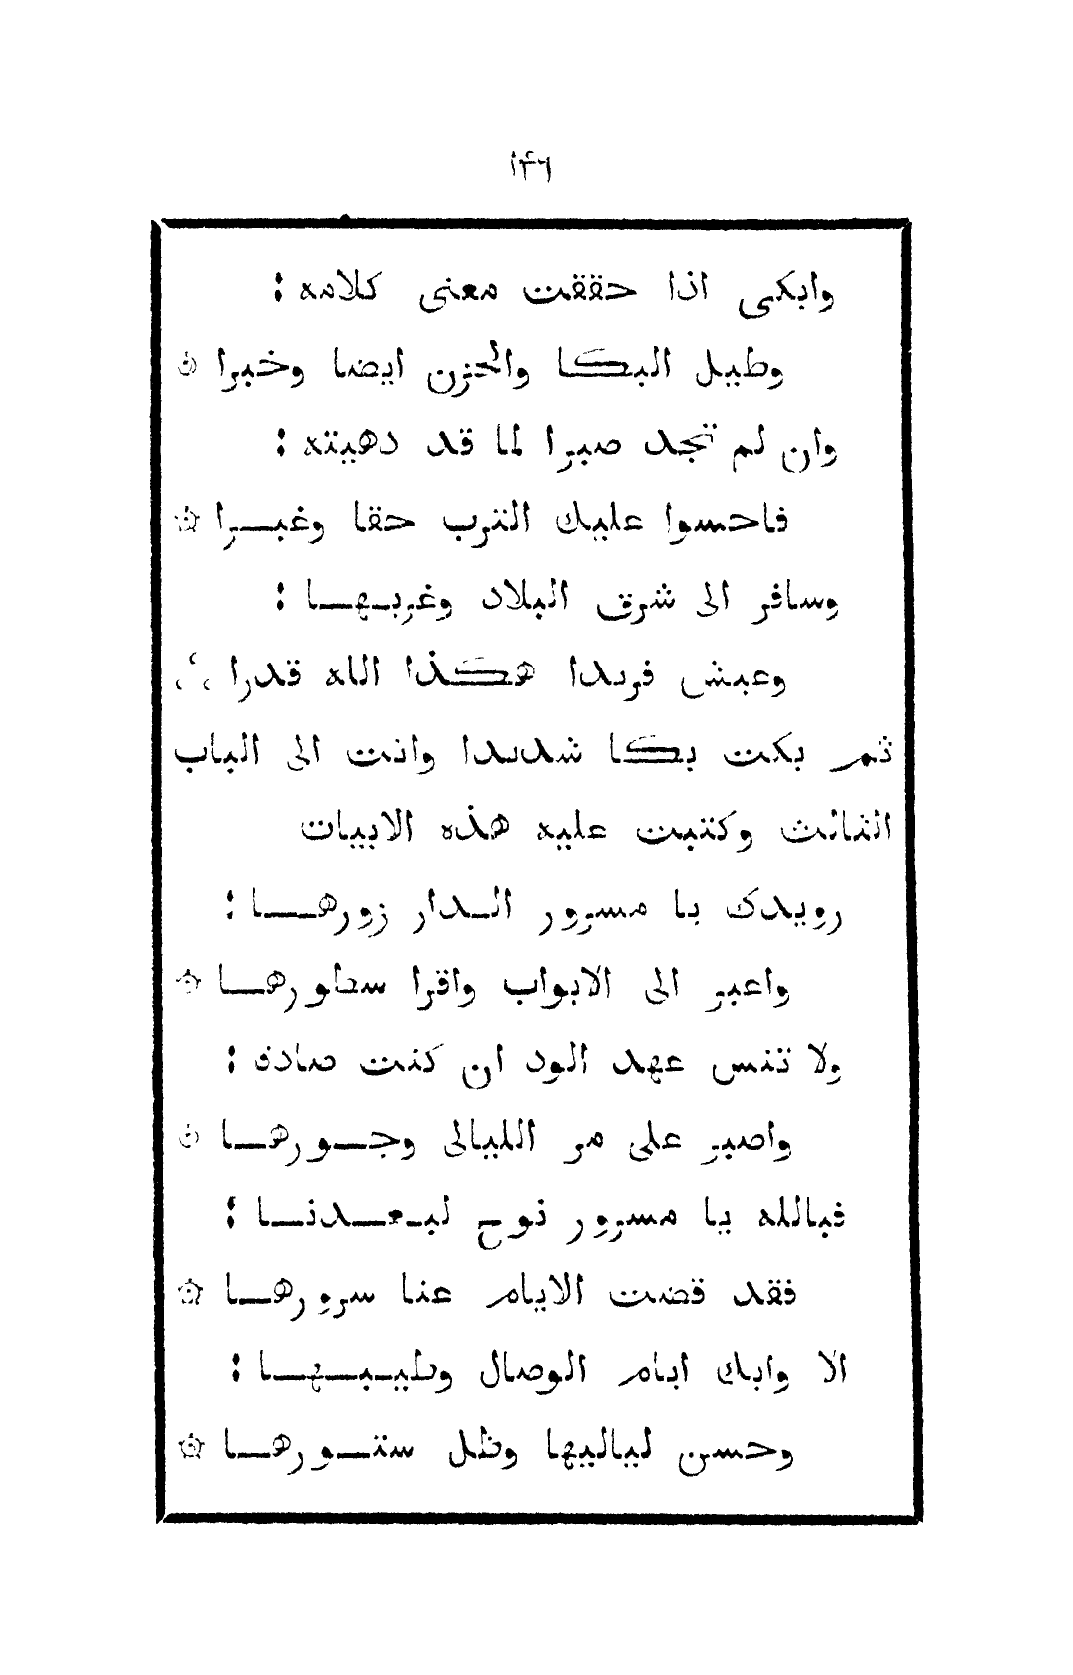 ١٤٦
وابكى اذا حققت معنى كلامه :
وطيل البكا والحزن ايضا وخبرا ۞
وان لم تجد صبرا لما قد دهيته :
فاحسوا عليك الترب حقا وغبرا ۞
وسافر الى شرق البلاد وغربها :
وعيش فريدا هكذا الله قدرا ∴
ثم بكت بكا شديدا وانت الى الباب
الثالث وكتبت عليه هذه الابيات
رويدك يا مسرور الدار زورها :
واعبر الى الابواب واقرا سطورها ۞
ولا تنس عهد الود ان كنت صادق :
واصبر على مر الليالى وجورها ۞
فبالله يا مسرور نوح لبعدنا :
فقد قضت الايام عنا سرورها ۞
الا وابك ايام الوصال وطيبها :
وحسن لياليها وظل ستورها ۞